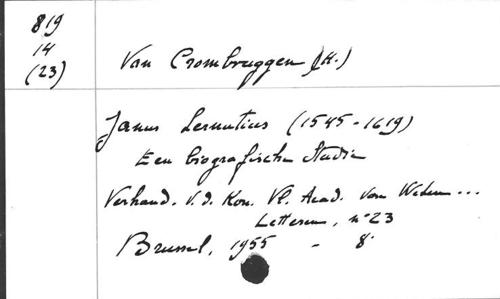 819
14
(23)
Van Crombruggen (H.)
Janus Lernutius (1545-1619)
Een biografische Studie
Verhand. v.d. Kon. Vl. Acad. van Weten...
Letteren, n° 23
Brussel, 1955 - 8°